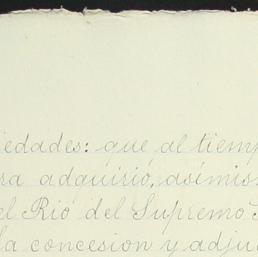 iedades: que al tiemp
ra adquirió, asémis
el Rio del Supremo
la concesion y adju